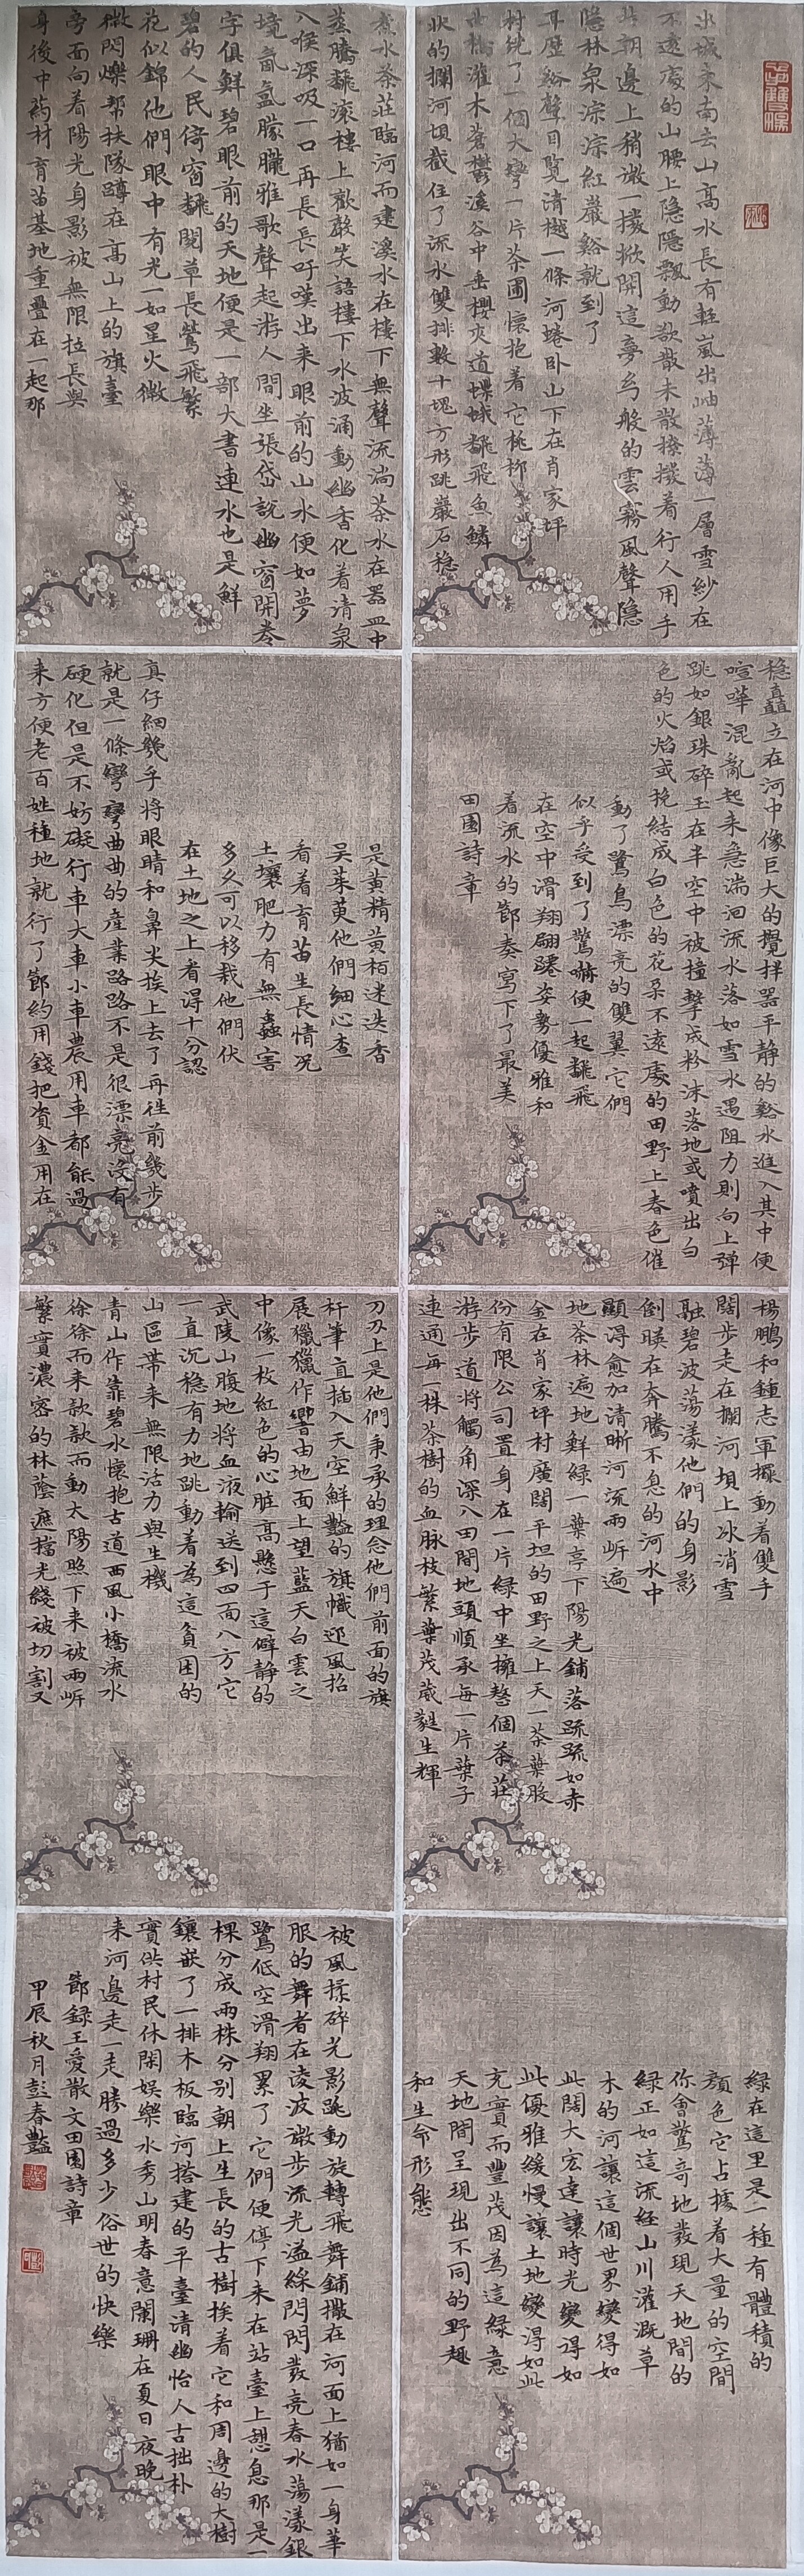 出城東南去山高水長有輕嵐出岫薄薄一層雪紗在
不遠處的山腰上隐隱飄動欲散未散撩撥着行人用手
朝邊上稍微一撥掀開這夢幻般的雲霧風聲隱
隱林泉淙淙紅巖谿就到了
耳歷谿聲目覽清樾一條河蜷卧山下在肖家坪
村繞了一個大彎一片茶圃懷抱着它桃柳
灌木蒼鬱溪谷中垂櫻夾道蝶蛾飜飛魚鱗
狀的攔河垻截住了流水雙排數十塊方形跳巖石稳
稳矗立在河中像巨大的攪拌器平静的谿水進入其中便
喧嘩混亂起来急湍洄流水落如雪水遇阻力則向上弹
跳如銀珠碎玉在半空中被撞擊成粉沫落地或噴出白
色的火焰或挽結成白色的花朵不遠處的田野上春色催
動了鷺鳥漂亮的雙翼它們
似乎受到了驚嚇便一起飜飛
在空中滑翔翩躚姿勢優雅和
着流水的節奏寫下了最美
田園詩章
楊鵬和鍾志軍擺動着雙手
闊步走在攔河垻上冰消雪
融碧波蕩漾他們的身影
倒映在奔騰不息的河水中
顯得愈加清晰河流兩岍遍
地茶林遍地鮮綠一葉亭下陽光鋪落疏疏如赤
金在肖家坪村廣闊平坦的田野之上天一茶葉股
份有限公司置身在一片緑中坐擁整個茶莊
游步道將觸角深入田間地頭順承每一片葉子
連通每一株茶樹的血脉枝繁葉茂葳蕤生輝
綠在這里是一種有體積的
顔色它占據着大量的空間
你會驚奇地發現天地間的
緑正如這流經山川灌溉草
木的河讓這個世界變得如
此闊大宏達讓時光變得如
此優雅緩慢讓土地變得如此
充實而豐茂因為這緑意
天地間呈現出不同的野趣
和生命形態
煮水茶莊臨河而建溪水在樓下無聲流淌茶水在器皿中
蒸騰飜滾樓上歡聲笑語樓下水波涌動幽香化着清泉
入喉深吸一口再長長吁嘆出来眼前的山水便如夢
境氤氲朦朧雅歌聲起游人間坐張岱說幽窗開卷
字俱鮮碧眼前的天地便是一部大書連水也是鮮
碧的人民倚窗飜閱草長鶯飛繁
花似錦他們眼中有光一如星火微
微閃爍帮扶隊蹲在高山上的旗臺
旁面向着陽光身影被無限拉長與
身後中葯材育苗基地重疊在一起那
是黄精黄栢迷迭香
吴茱萸他們細心查
看着育苗生長情况
土壤肥力有無蟲害
多久可以移栽他們伏
在土地之上看得十分認
真仔細幾乎將眼睛和鼻尖挨上去了再往前幾步
就是一條彎彎曲曲的産業路路不是很漂亮没有
硬化但是不妨礙行車大車小車農用車都能過
来方便老百姓種地就行了節約用錢把資金用在
刀刃上是他們秉承的理念他們前面的旗
杆筆直插入天空鮮豔的旗幟迎風招
展獵獵作響由地面上望藍天白雲之
中像一枚紅色的心脏高懸于這僻静的
武陵山腹地將血液輸送到四面八方它
一直沉稳有力地跳動着為這貧困的
山區帶来無限活力與生機
青山作靠碧水懷抱古道西風小橋流水
徐徐而来歀歀而動太陽照下来被兩岍
繁實濃密的林蔭遮擋光綫被切割又
被風揉碎光影跳動旋轉飛舞鋪撒在河面上猶如一身華
服的舞者在淩波微步流光溢綵閃閃發亮春水蕩漾銀
鷺低空滑翔累了它們便停下来在站臺上憩息那是一
棵分成兩株分别朝上生長的古樹挨着它和周邊的大樹
鑲嵌了一排木板臨河搭建的平臺清幽怡人古拙朴
實供村民休閑娱樂水秀山明春意闌珊在夏日夜晚
来河邊走一走勝過多少俗世的快樂
節録王愛散文田園詩章
甲辰秋月彭春豔